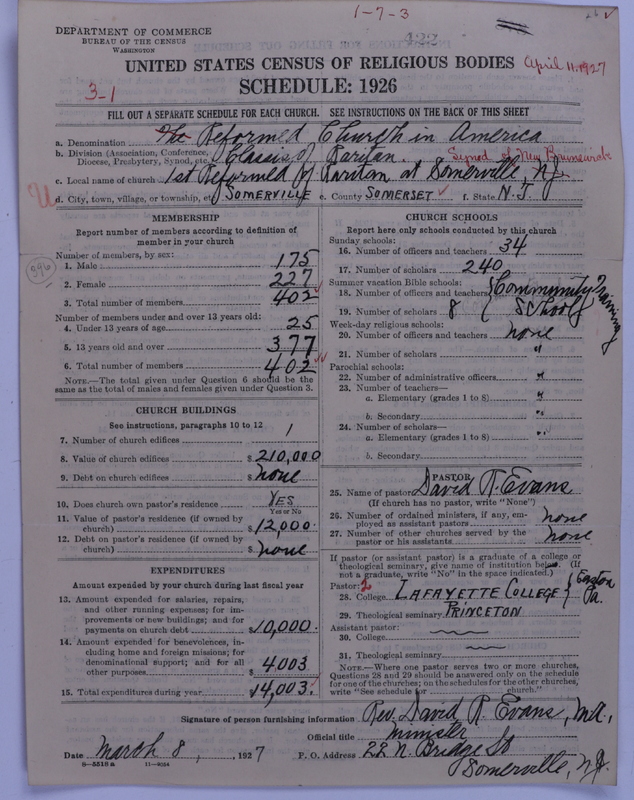 1-7-3
DEPARTMENT OF COMMERCE
BUREAU OF THE CENSUS
WASHINGTON
UNITED STATES CENSUS OF RELIGIOUS BODIES
April 11, 1927
SCHEDULE: 1926
3-1
FILL OUT A SEPARATE SCHEDULE FOR EACH CHURCH. SEE INSTRUCTIONS ON THE BACK OF THIS SHEET
a. Denomination The Reformed Church in America
b. Division (Association, Conference, Diocese, Presbytery, Synod, etc. Classis of Raritan. Synod of New Brunswick
c. Local name of church 1st Reformed of Raritan at Somerville, N.J.
d. City, town, village, or township, etc. SOMERVILLE e. County SOMERSET f. State N.J.
MEMBERSHIP
Report number of members according to definition of
member in your church
Number of members, by sex:
1. Male 175
2. Female 227
3. Total number of members 402
Number of members under and over 13 years old:
4. Under 13 years of age 25
5. 13 years old and over 377
6. Total number of members 402
NOTE.—The total given under Question 6 should be the
same as the total of males and females given under Question 3.
CHURCH BUILDINGS
See instructions, paragraphs 10 to 12
7. Number of church edifices 1
8. Value of church edifices $210,000
9. Debt on church edifices $ none
10. Does church own pastor's residence YES
Yes or No
11. Value of pastor's residence (if owned by
church) $12,000.
12. Debt on pastor's residence (if owned by
church) $ none
EXPENDITURES
Amount expended by your church during last fiscal year
13. Amount expended for salaries, repairs,
and other running expenses; for im-
provements or new buildings; and for
payments on church debt $10,000.
14. Amount expended for benevolences, in-
cluding home and foreign missions; for
denominational support; and for all
other purposes $ 4003
15. Total expenditures during year $14,003.
CHURCH SCHOOLS
Report here only schools conducted by this church
Sunday schools:
16. Number of officers and teachers 34
17. Number of scholars 240
Summer vacation Bible schools:
18. Number of officers and teachers Community Training
19. Number of scholars 8 School
Week-day religious schools:
20. Number of officers and teachers none
21. Number of scholars "
Parochial schools:
22. Number of administrative officers "
23. Number of teachers—
a. Elementary (grades 1 to 8) "
b. Secondary "
24. Number of scholars—
a. Elementary (grades 1 to 8) "
b. Secondary
PASTOR
25. Name of pastor David R. Evans
(If church has no pastor, write "None")
26. Number of ordained ministers, if any, em-
ployed as assistant pastors none
27. Number of other churches served by the
pastor or his assistants none
If pastor (or assistant pastor) is a graduate of a college or
theological seminary, give name of institution below. (If
not a graduate, write "No" in the space indicated.)
Pastor: 2
28. College LAFAYETTE COLLEGE Easton Pa.
29. Theological seminary PRINCETON
Assistant pastor:
30. College
31. Theological seminary
NOTE.—Where one pastor serves two or more churches,
Questions 28 and 29 should be answered only on the schedule
for one of the churches; on the schedules for the other churches,
write "See schedule for church."
Signature of person furnishing information Rev. David R. Evans, M.A.,
Official title minister
Date March 8, 1927 P. O. Address 22 N. Bridge St
Somerville, N.J.
8—5518a 11—9054